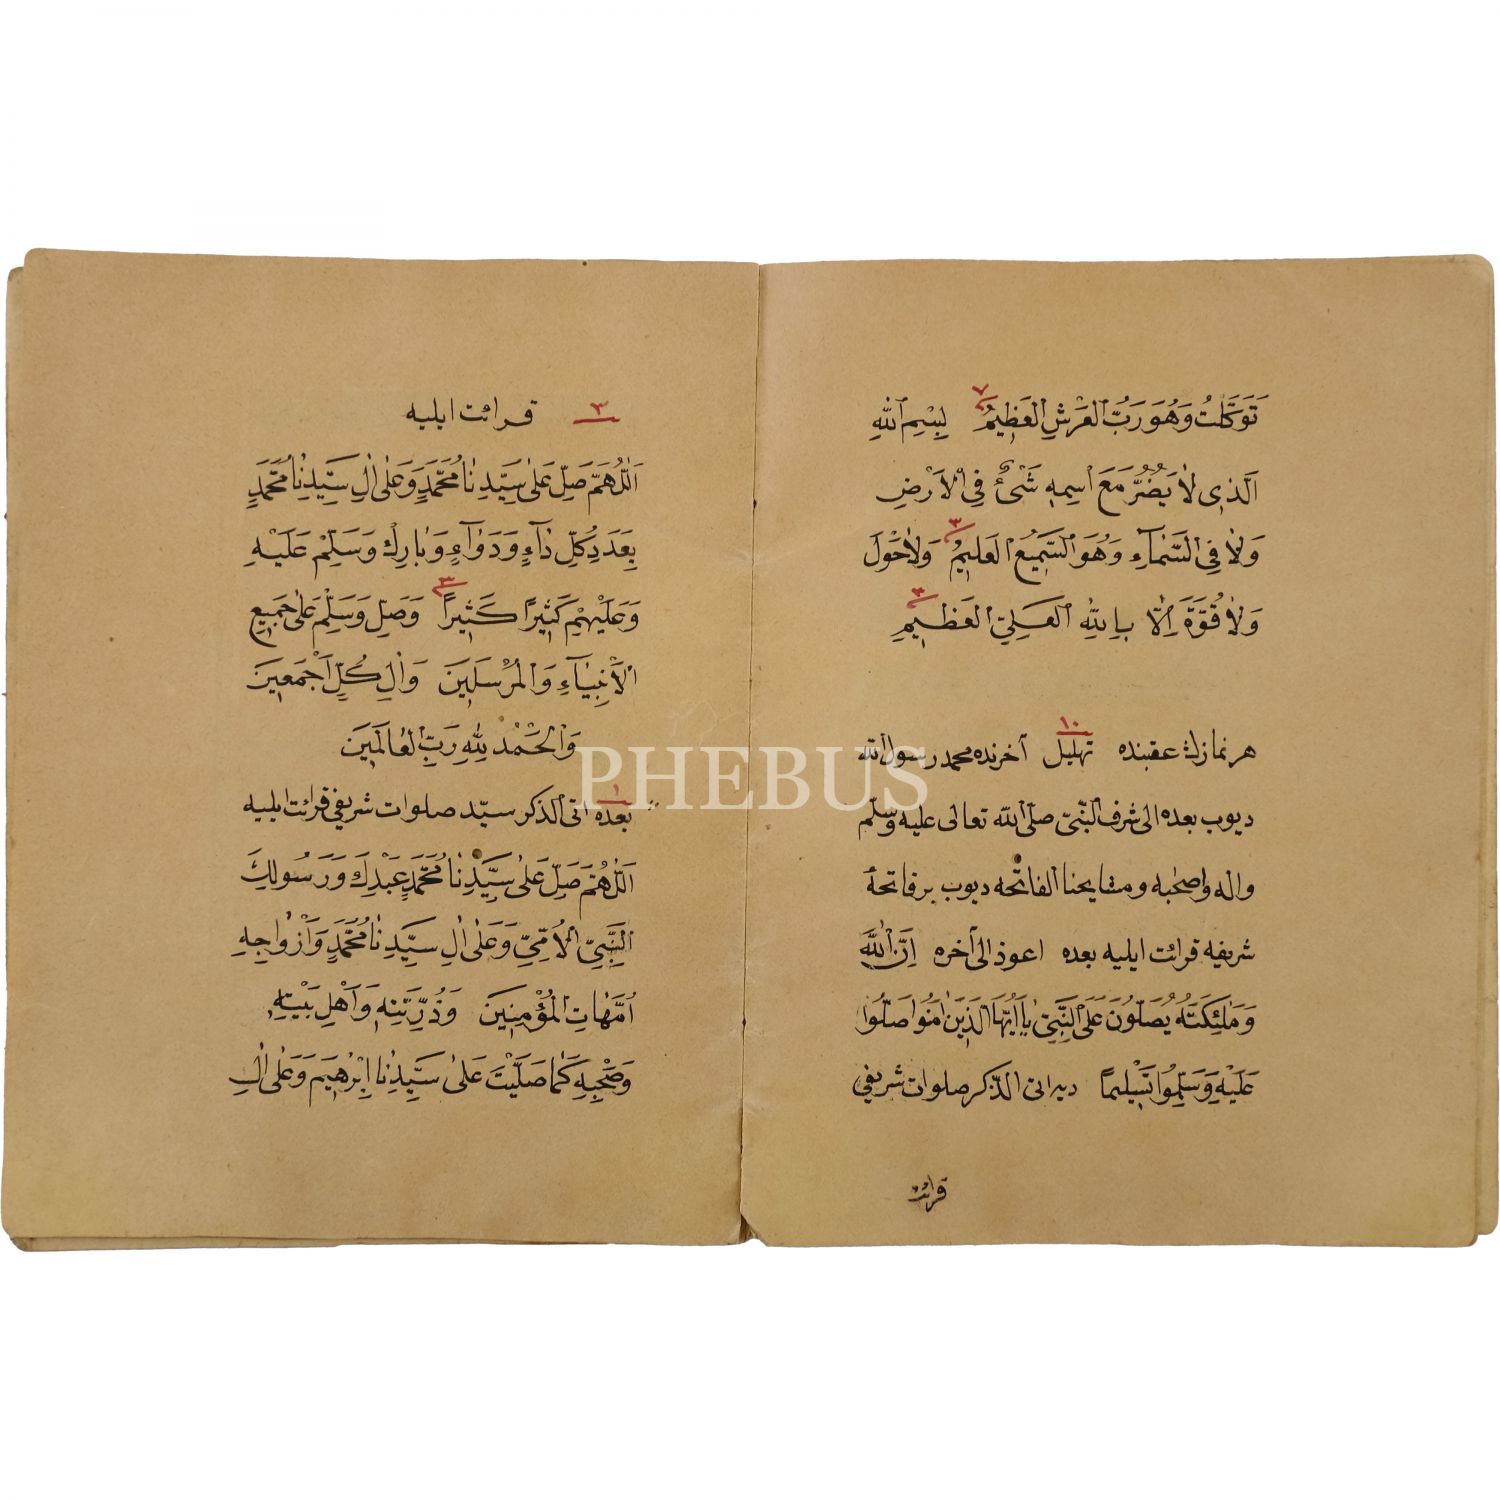 ٧
تَوَكَّلْتُ وَهُوَ رَبُّ الْعَرْشِ الْعَظِيمُ بِسْمِ اللهِ
الَّذِى لَا يَضُرُّ مَعَ اسْمِهِ شَىْءٌ فِى الْاَرْضِ
٣
وَلَا فِى السَّمَاءِ وَهُوَ السَّمِيعُ الْعَلِيمُ وَلَا حَوْلَ
٣
وَلَا قُوَّةَ اِلَّا بِاللهِ الْعَلِىِّ الْعَظِيمِ
١٠
هر نمازك عقبنده تهليل آخرنده محمد رسول الله
ديوب بعده الى شرف النَّبىّ صلّى اللّه تعالى عليه وسلّم
واله واصحبه ومشايخنا الفاتحه ديوب بر فاتحهٔ
شريفه قرائت ايليه بعده اعوذ الى آخره اِنَّ اللّٰهَ
وَمَلٰئِكَتَهُ يُصَلُّونَ عَلَى النَّبِىِّ يَا اَيُّهَا الَّذِينَ اٰمَنُوا صَلُّوا
عَلَيْهِ وَسَلِّمُوا تَسْلِيمًا ديه اتى الذّكر صلوات شريفى
قرائت
٣ قرائت ايليه
اَللّٰهُمَّ صَلِّ عَلٰى سَيِّدِنَا مُحَمَّدٍ وَعَلٰى اٰلِ سَيِّدِنَا مُحَمَّدٍ
بِعَدَدِ كُلِّ دَاءٍ وَدَوَاءٍ وَبَارِكْ وَسَلِّمْ عَلَيْهِ
٣
وَعَلَيْهِمْ كَثِيرًا كَثِيرًا وَصَلِّ وَسَلِّمْ عَلٰى جَمِيعِ
الْاَنْبِيَاءِ وَالْمُرْسَلِينَ وَاٰلِ كُلٍّ اَجْمَعِينَ
وَالْحَمْدُ لِلّٰهِ رَبِّ الْعَالَمِينَ
١
بعده اتى الذكر سيّد صلوات شريفى قرائت ايليه
اَللّٰهُمَّ صَلِّ عَلٰى سَيِّدِنَا مُحَمَّدٍ عَبْدِكَ وَرَسُولِكَ
النَّبِىِّ الْاُمِّىِّ وَعَلٰى اٰلِ سَيِّدِنَا مُحَمَّدٍ وَاَزْوَاجِهِ
اُمَّهَاتِ الْمُؤْمِنِينَ وَذُرِّيَّتِهِ وَاَهْلِ بَيْتِهِ
وَصَحْبِهِ كَمَا صَلَّيْتَ عَلٰى سَيِّدِنَا اِبْرٰهِيمَ وَعَلٰى اٰلِ
PHEBUS